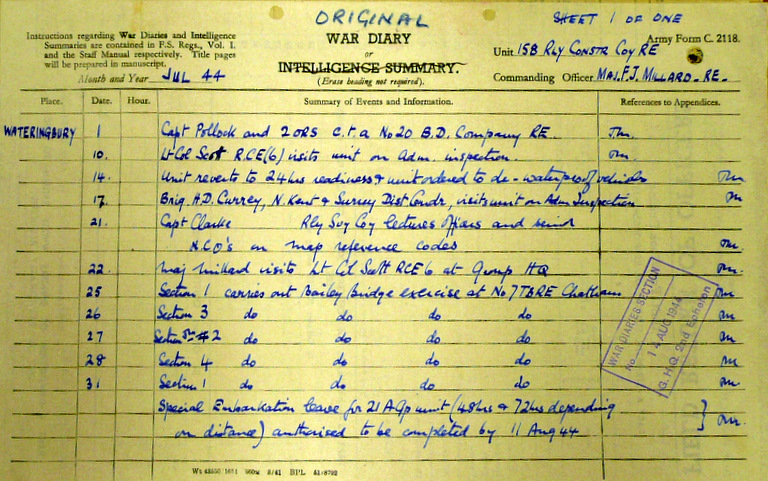 ORIGINAL
SHEET 1 OF ONE
Instructions regarding War Diaries and Intelligence
Summaries are contained in F.S. Regs., Vol. I.
and the Staff Manual respectively. Title pages
will be prepared in manuscript.
WAR DIARY
or
INTELLIGENCE SUMMARY.
(Erase heading not required).
Army Form C. 2118.
Unit 158 Rly Constr Coy RE
Month and Year JUL 44
Commanding Officer Maj. F.J. MILLARD. RE.
Place. Date. Hour. Summary of Events and Information. References to Appendices.
WATERINGBURY 1 Capt Pollock and 2 ORS c.t.a No 20 B.D. Company RE
10. Lt Col Scott R.CE(6) visits unit on Adm. inspection.
14. Unit reverts to 24 hrs readiness & unit ordered to de-waterproof vehicles
17. Brig. H.D. Currey, N. Kent & Surrey Dist Comdr, visits unit on Adm Inspection
21. Capt Clarke Rly Svy Coy lectures officers and senior
N.C.O's on map reference codes
22 Maj Millard visits Lt Col Scott RCE 6 at Group HQ
25 Section 1 carries out Bailey Bridge exercise at No 7 TBRE Chatham
26 Section 3 do do do do
27 Section 2 do do do do
28 Section 4 do do do do
31 Section 1 do do do do
Special Embarkation leave for 21 A Gp unit (48hrs & 72hrs depending
on distance) authorised to be completed by 11 Aug 44
WAR DIARIES SECTION
No
14 AUG 1944
G.H.Q. 2nd Echelon
BPL